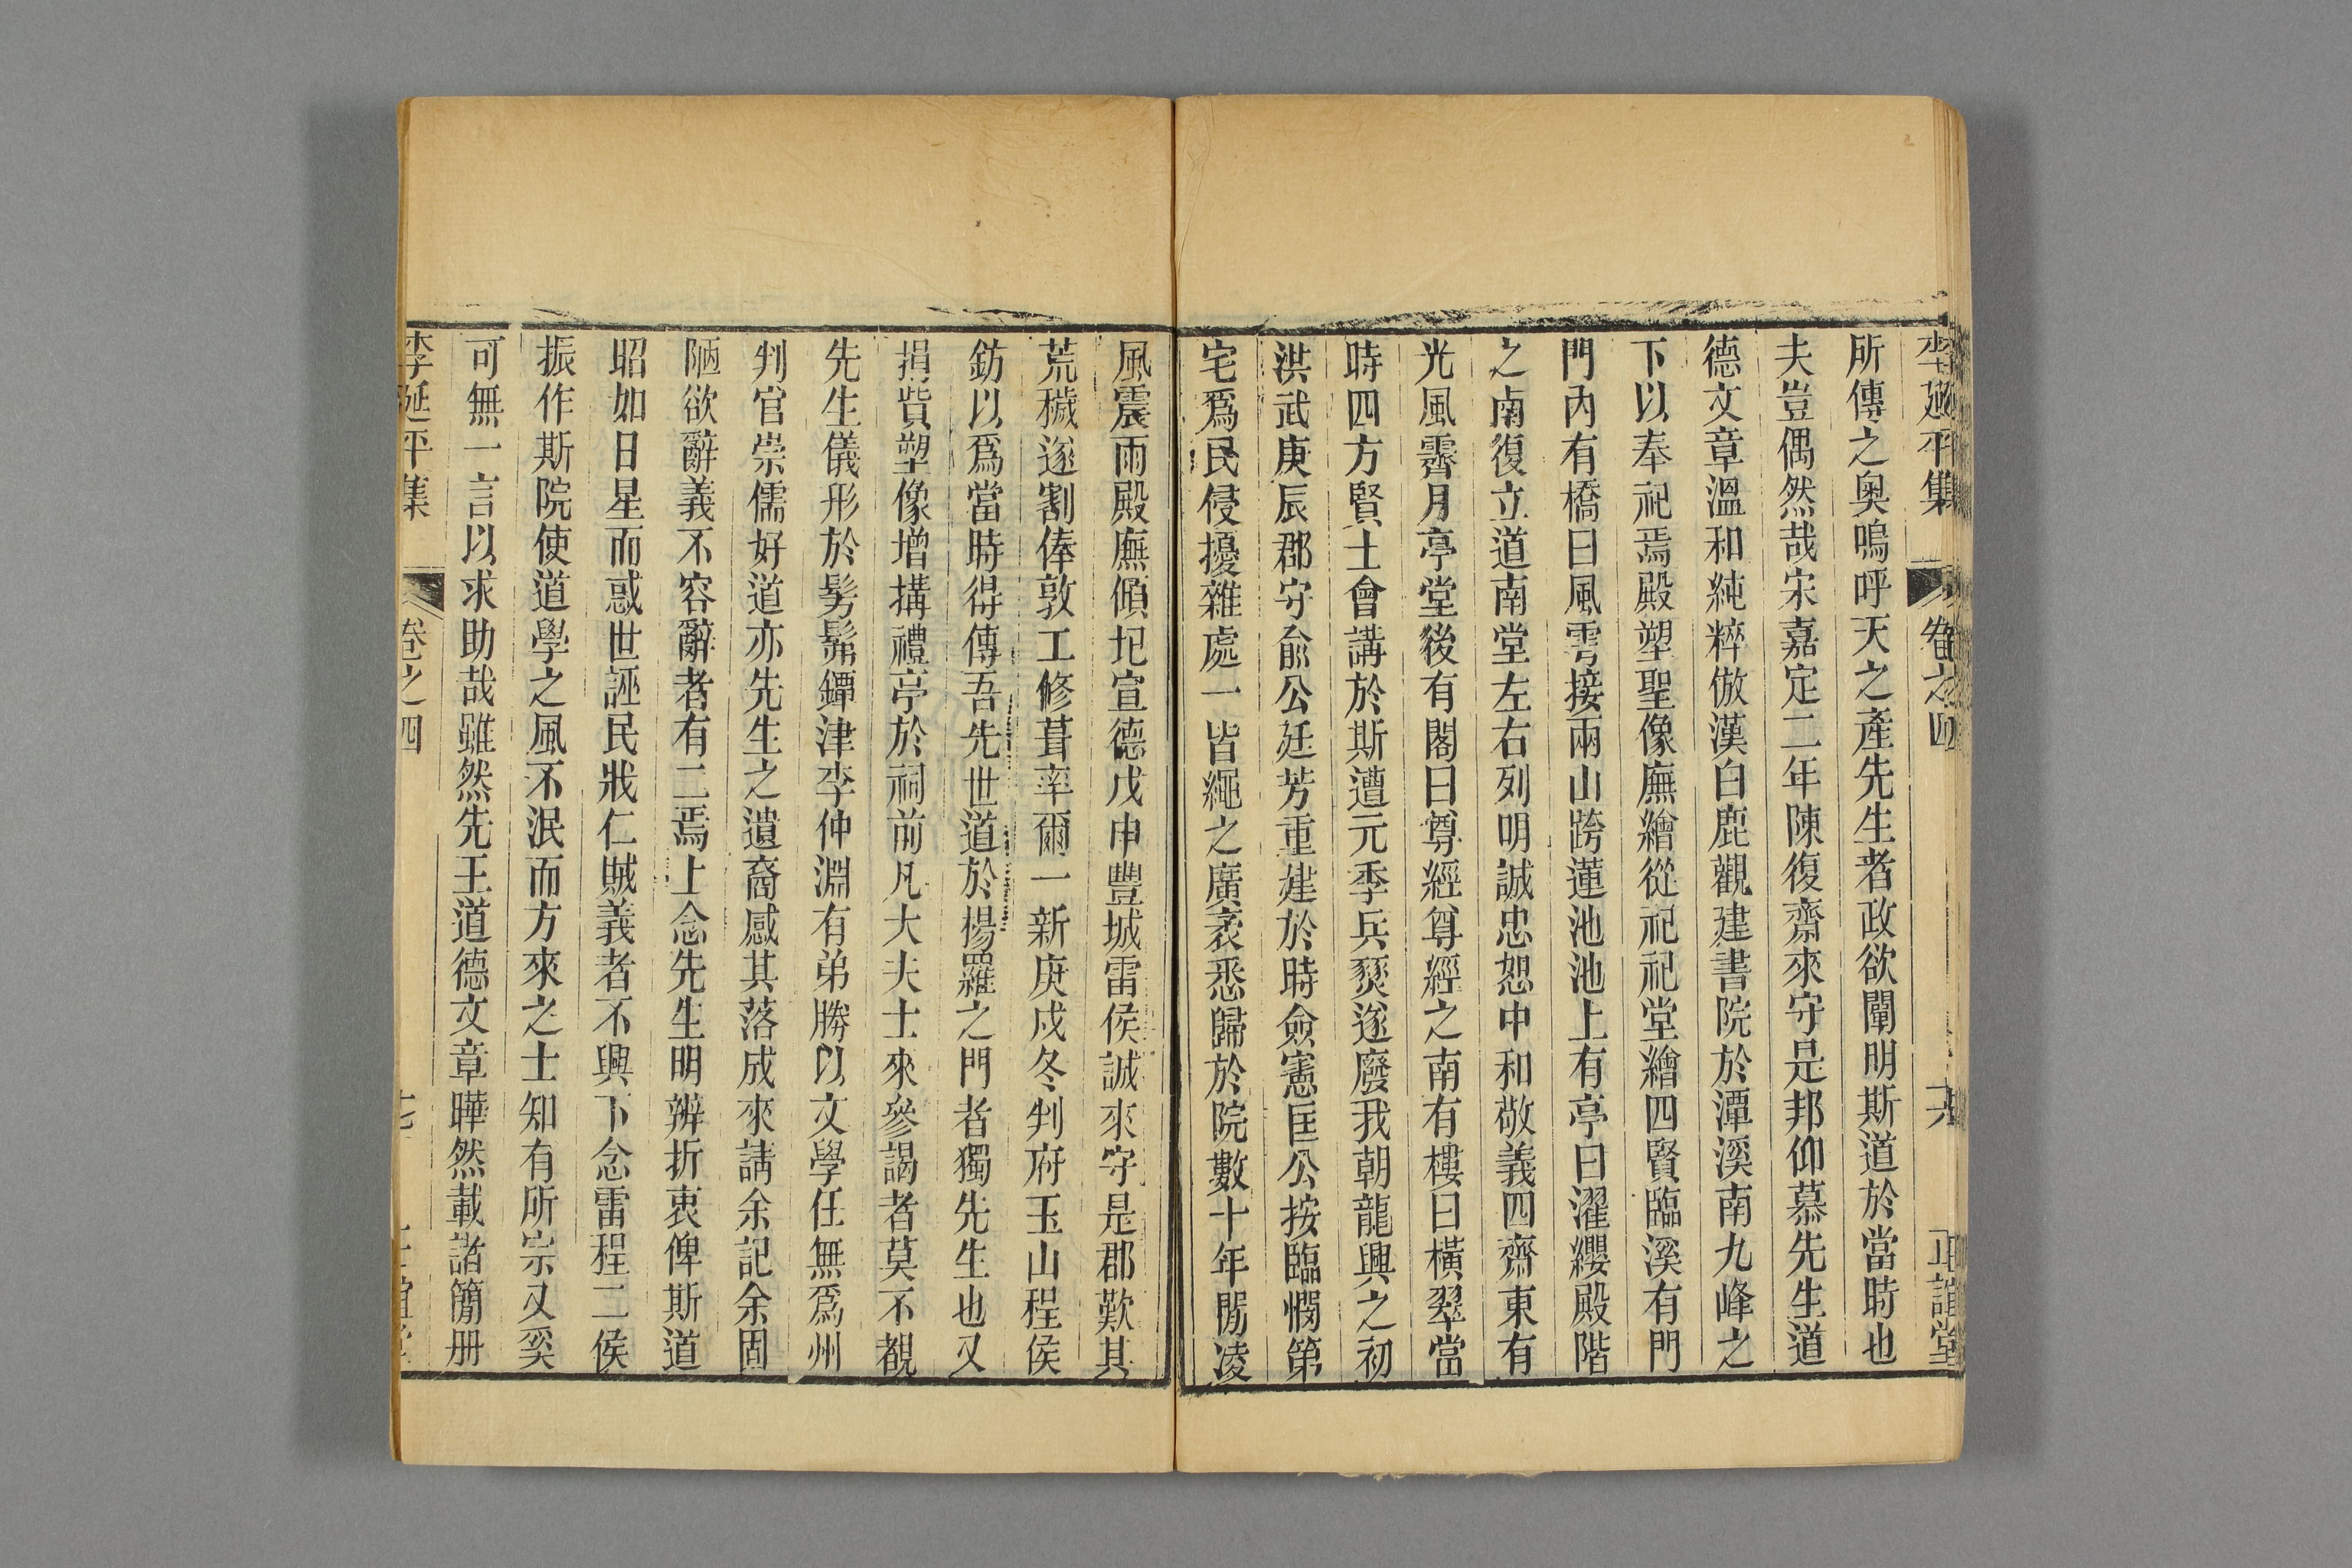 李延平集 卷之四 六 正誼堂
所傳之奧嗚呼天之產先生者政欲闡明斯道於當時也
夫豈偶然哉宋嘉定二年陳復齋來守是邦仰慕先生道
德文章溫和純粹倣漢白鹿觀建書院於潭溪南九峰之
下以奉祀焉殿塑聖像廡繪從祀祀堂繪四賢臨溪有門
門內有橋曰風雩接兩山跨蓮池池上有亭曰濯纓殿階
之南復立道南堂左右列明誠忠恕中和敬義四齋東有
光風霽月亭堂後有閣曰尊經尊經之南有樓曰橫翠當
時四方賢士會講於斯遭元季兵燹遂廢我朝龍興之初
洪武庚辰郡守俞公廷芳重建於時僉憲匡公按臨憫第
宅爲民侵擾雜處一皆繩之廣袤悉歸於院數十年間凌
風震雨殿廡傾圯宣德戊申豐城雷侯誠來守是郡歎其
荒穢遂割俸敦工修葺率爾一新庚戌冬判府玉山程侯
鈁以爲當時得傳吾先世道於揚羅之門者獨先生也又
捐貲塑像增搆禮亭於祠前凡大夫士來參謁者莫不覩
先生儀形於髣髴鐔津李仲淵有弟勝以文學任無爲州
判官崇儒好道亦先生之遺裔感其落成來請余記余固
陋欲辭義不容辭者有二焉上念先生明辨折衷俾斯道
昭如日星而惑世誣民戕仁賊義者不興下念雷程二侯
振作斯院使道學之風不泯而方來之士知有所宗又奚
可無一言以求助哉雖然先王道德文章曄然載諸簡册
李延平集 卷之四 七